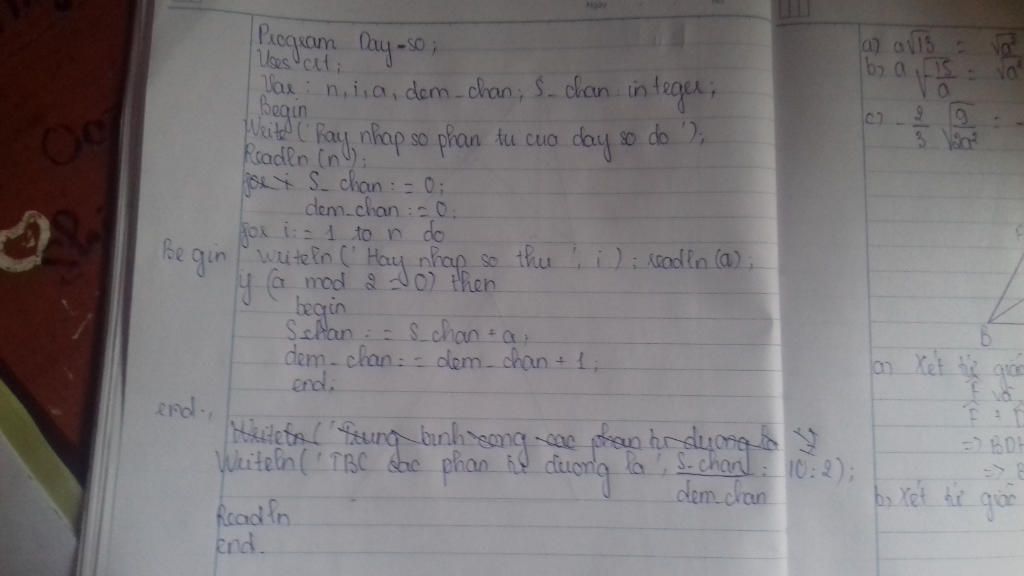 Program Day-so;
Uses crt;
Var : n, i, a, dem_chan, S_chan integer;
Begin
Write('Hay nhap so phan tu cua day so do');
Readln(n);
for i S_chan := 0;
dem_chan := 0;
for i := 1 to n do
Begin writeln('Hay nhap so thu', i); readln(a);
if (a mod 2 = 0) then
begin
S_chan := S_chan + a;
dem_chan := dem_chan + 1;
end;
end;
Writeln('Trung binh cong cac phan tu duong la
Writeln('TBC cac phan tử dương la', S_chan/dem_chan : 10:2);
Readln
end.
a) a√13 =
b) a√15/a =
c) -2/3
B
a) Xét tứ giác
F và
=> BDH
=> B
b, Xét tứ giác